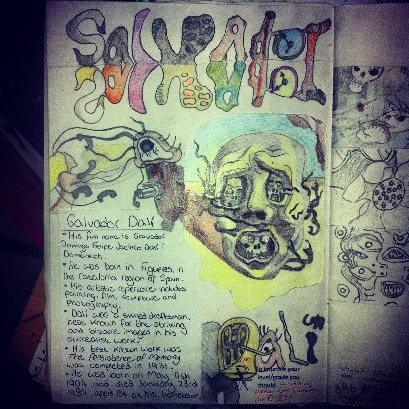 Salvador
Salvador Dali
• His full name is Salvador
Domingo Felipe Jacinto Dali i
Domènech.
• He was born in Figueres, in
the Catalonia region of Spain.
• His artistic repertoire includes
painting, film, sculpture, and
photography.
• Dali was a skilled draftsman,
best known for the striking
and bizarre images in his
surrealist work.
• His best known work was
The Persistence of Memory
was completed in 1931.
• He was born on May, 11th
1904 and died January, 23rd
1989, aged 84 at his hometown.
Dali
To improve your
level/grade you
should